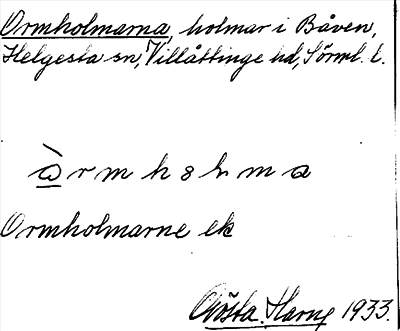 Ormholmarna, holmar i Båven,
Helgesta sn, Villåttinge hd, Sörml. l.
ò̲ r m h o l m a
Ormholmarne ek
Gösta Harng 1933.